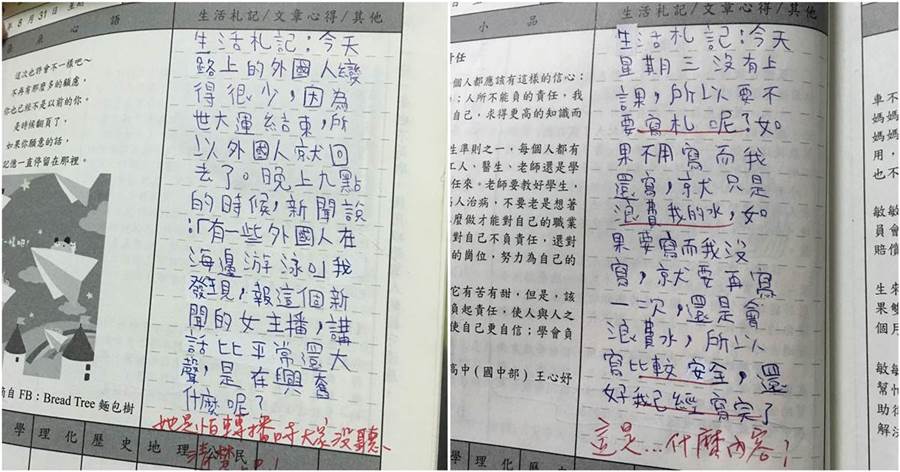 年 8 月 31 日 星期
生活札記/文章心得/其他
心語
這次也許會不一樣吧~
不再有那麼多的顧慮,
你也已經不是以前的你,
是時候翻頁了,
如果你願意的話,
記憶一直停留在那裡。
一樣吧!
摘自 FB：Bread Tree 麵包樹
生活札記:今天
路上的外國人變
得很少,因為
世大運結束,所
以外國人就回
去了。晚上九點
的時候,新聞說
:「有一些外國人在
海邊游泳」我
發現,報這個新
聞的女主播,講
話比平常還大
聲,是在興奮
什麼呢?
她是怕轉播時大家沒聽
清楚
學 理化 歷史 地理 公民
小品
生活札記/文章心得/其他
責任
個人都應該有這樣的信心:
;人所不能負的責任,我
自己,求得更高的知識而
生準則之一,每個人都有
工人、醫生、老師還是學
任來。老師要教好學生,
病人治病,不要老是想著
麼做才能對自己的職業
對自己不負責任,還對
的崗位,努力為自己的
它有苦有甜,但是,該
負起責任,使人與人之
使自己更自信;學會負
高中(國中部) 王心妤
生活札記:今天
星期三沒有上
課,所以要不
要寫札呢?如
果不用寫而我
還寫,就只是
浪費我的水,如
果要寫而我沒
寫,就要再寫
一次,還是會
浪費水,所以
寫比較安全,還
好我已經寫完了
這是...什麼內容!
學 理化 歷史 地理 公民
車不
媽媽
媽媽
用,
也不
敏敏
員會
賠償
生來
果雙
個月
敏敏
幫忙
助彳
解決